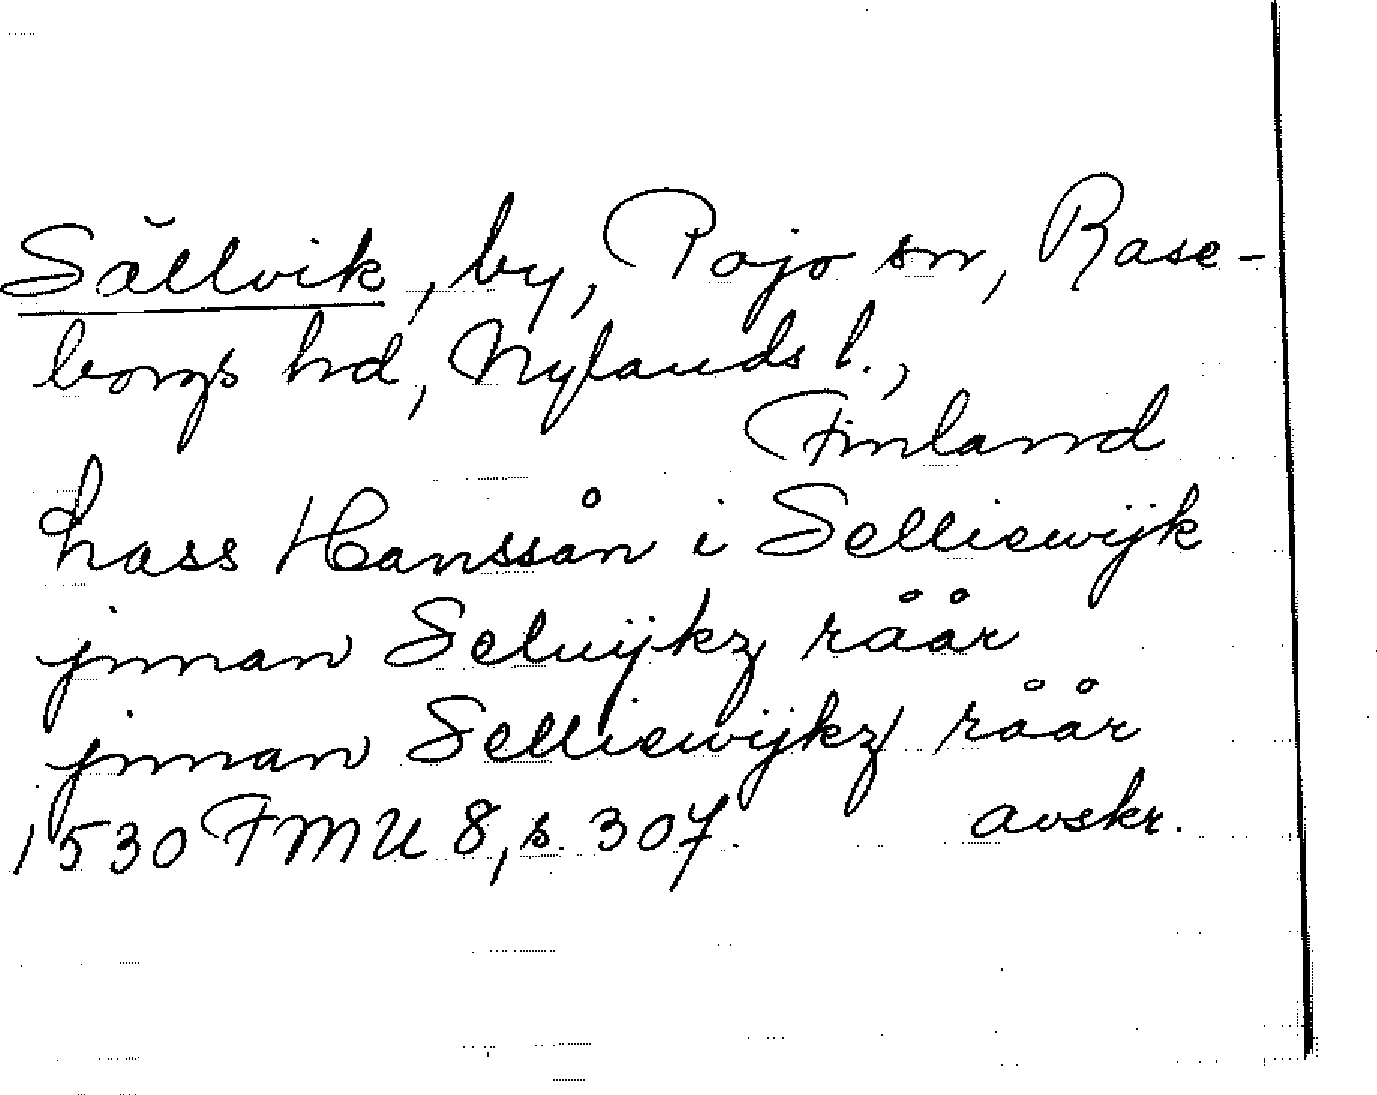 Sällvik, by, Pojo sn, Rase-
borgs hd, Nylands l.,
Finland
hass Hanssån i Selliewijk
jnnan Seluijkz råår
jnnan Selliewijkz råår
1530 FMU 8, s. 307. avskr.